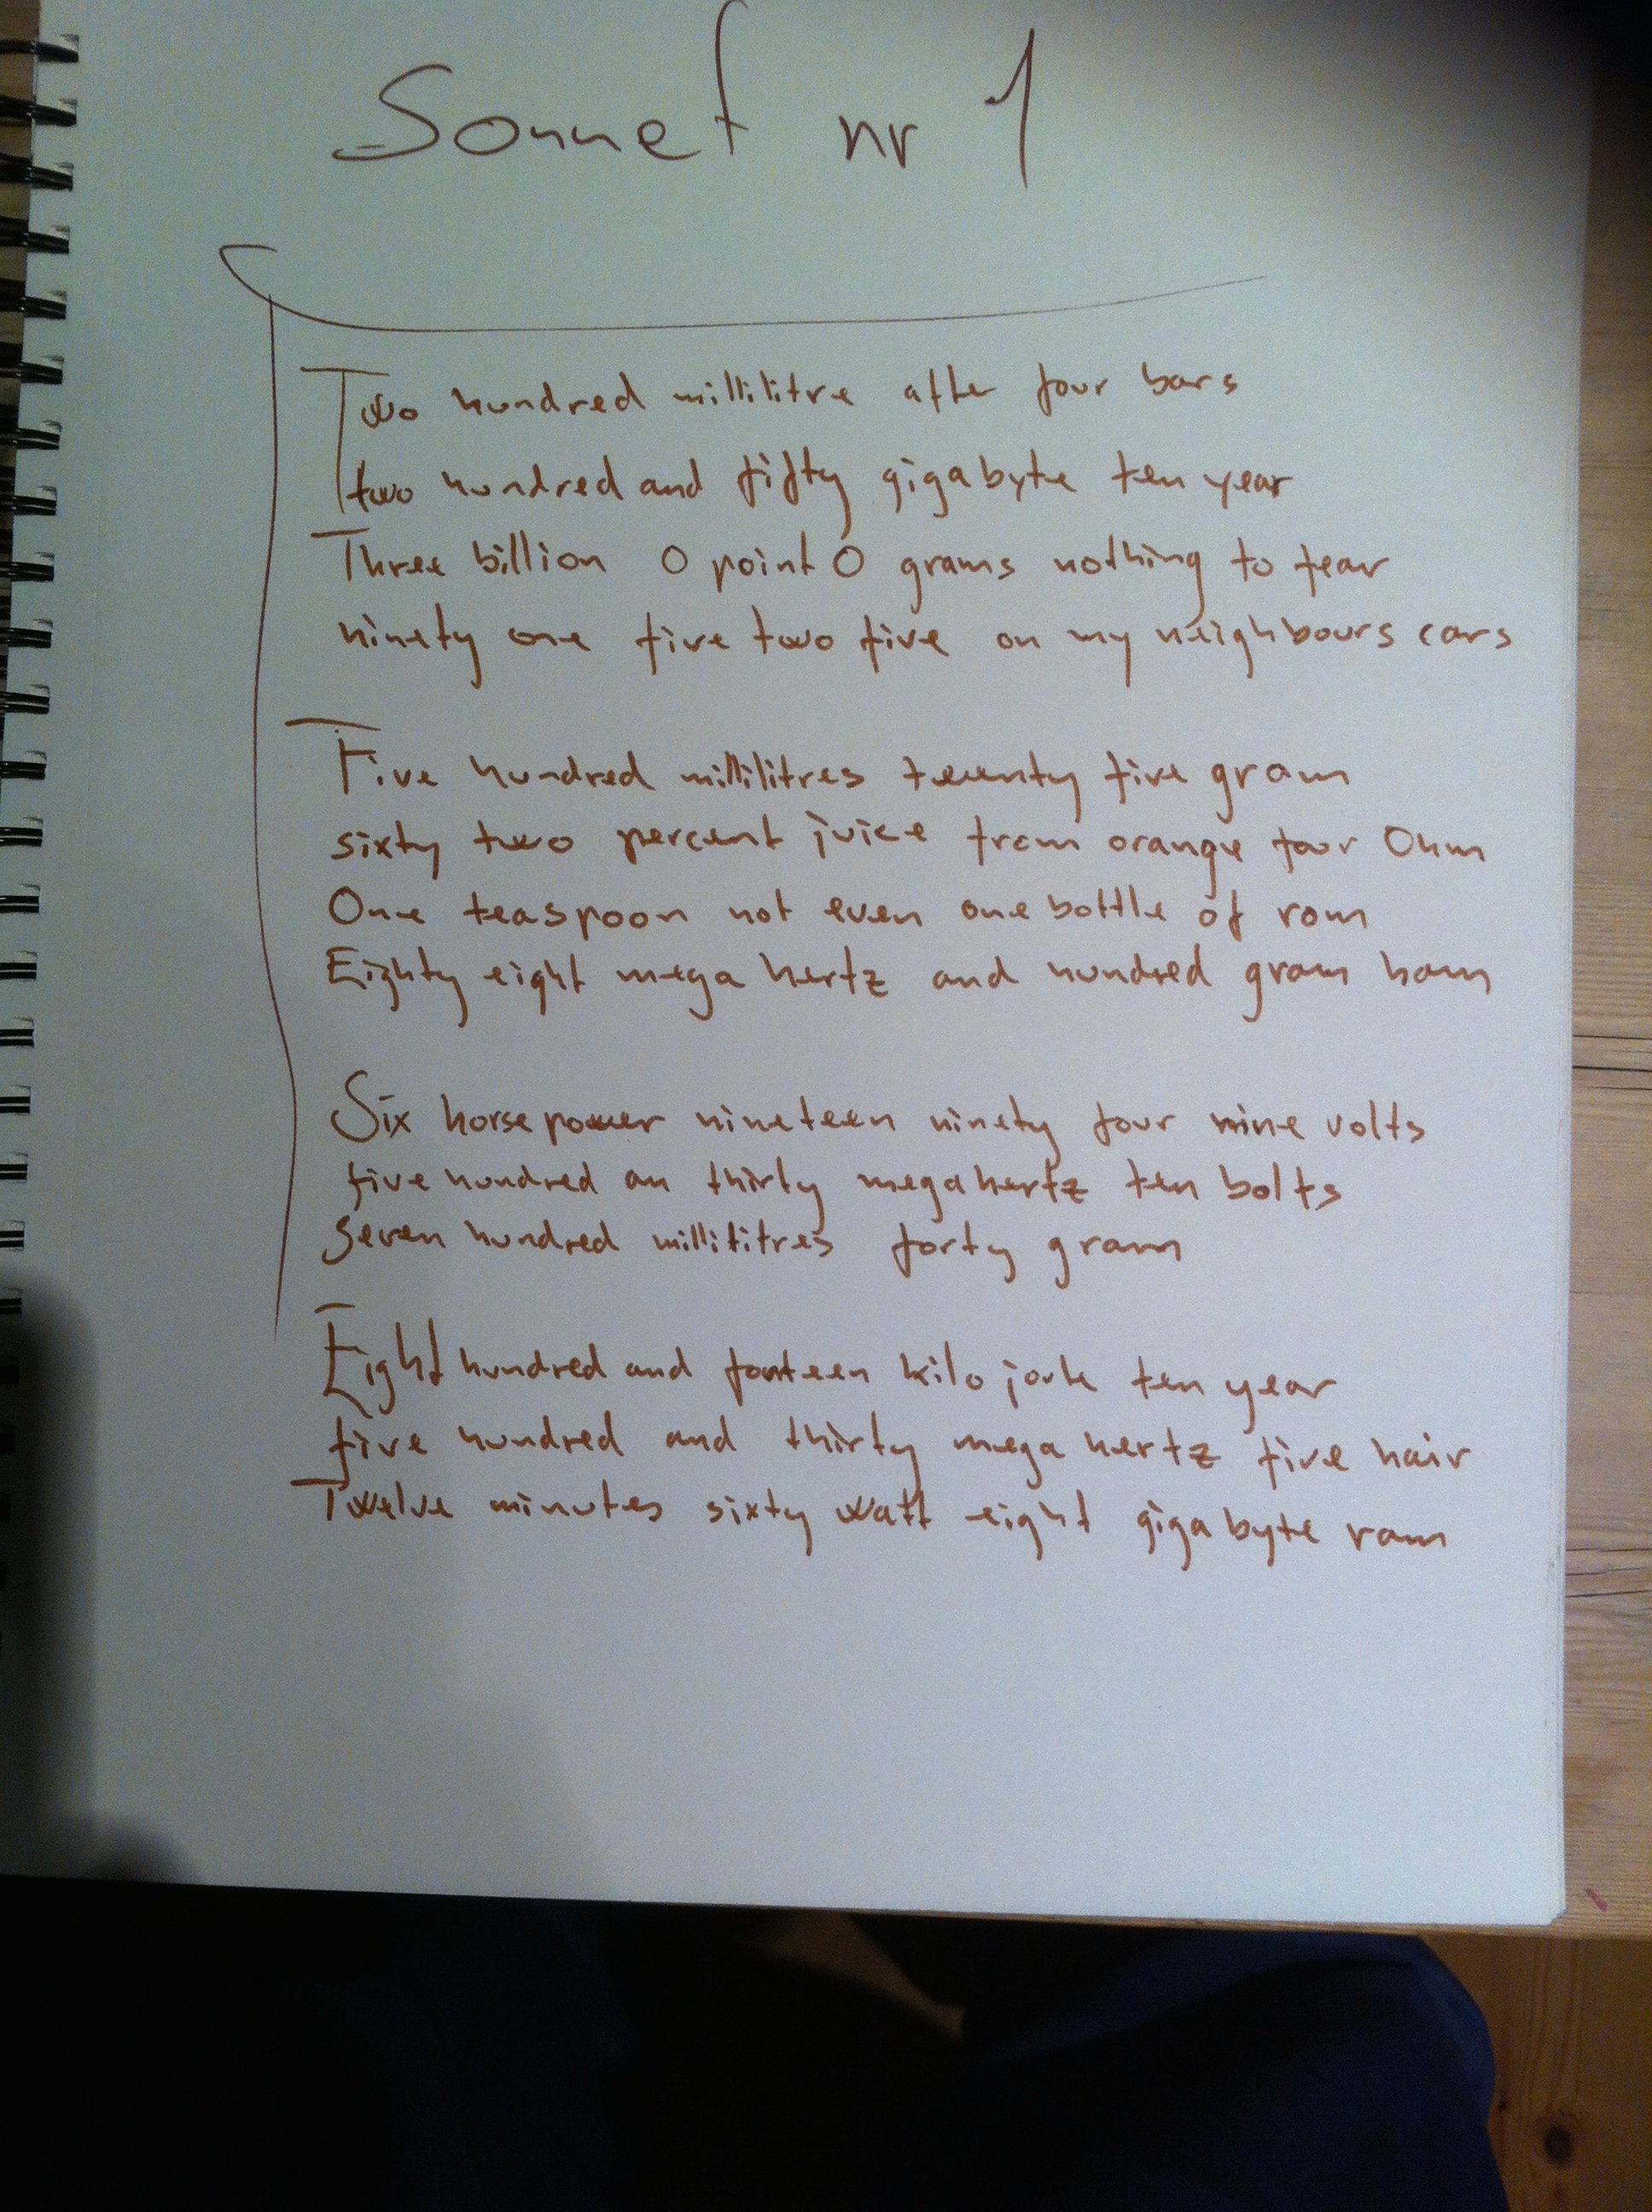 Sonnet nr 1
Two hundred millilitre after four bars
two hundred and fifty gigabyte ten year
Three billion 0 point 0 grams nothing to fear
ninety one five two five on my neighbours cars
Five hundred millilitres twenty five gram
sixty two percent juice from orange four Ohm
One teaspoon not even one bottle of rom
Eighty eight mega hertz and hundred gram ham
Six horse power nineteen ninety four nine volts
five hundred an thirty megahertz ten bolts
Seven hundred millilitres forty gram
Eight hundred and fourteen kilo joule ten year
five hundred and thirty mega hertz five hair
Twelve minutes sixty watt eight giga byte ram